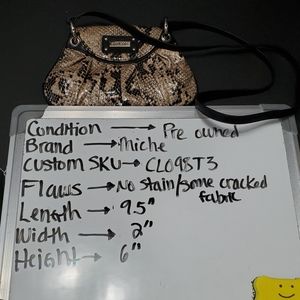 Condition → Pre owned
Brand → Miche
Custom SKU → CL098T3
Flaws → No Stain/some cracked fabric
Length → 9.5"
Width → 2"
Height → 6"